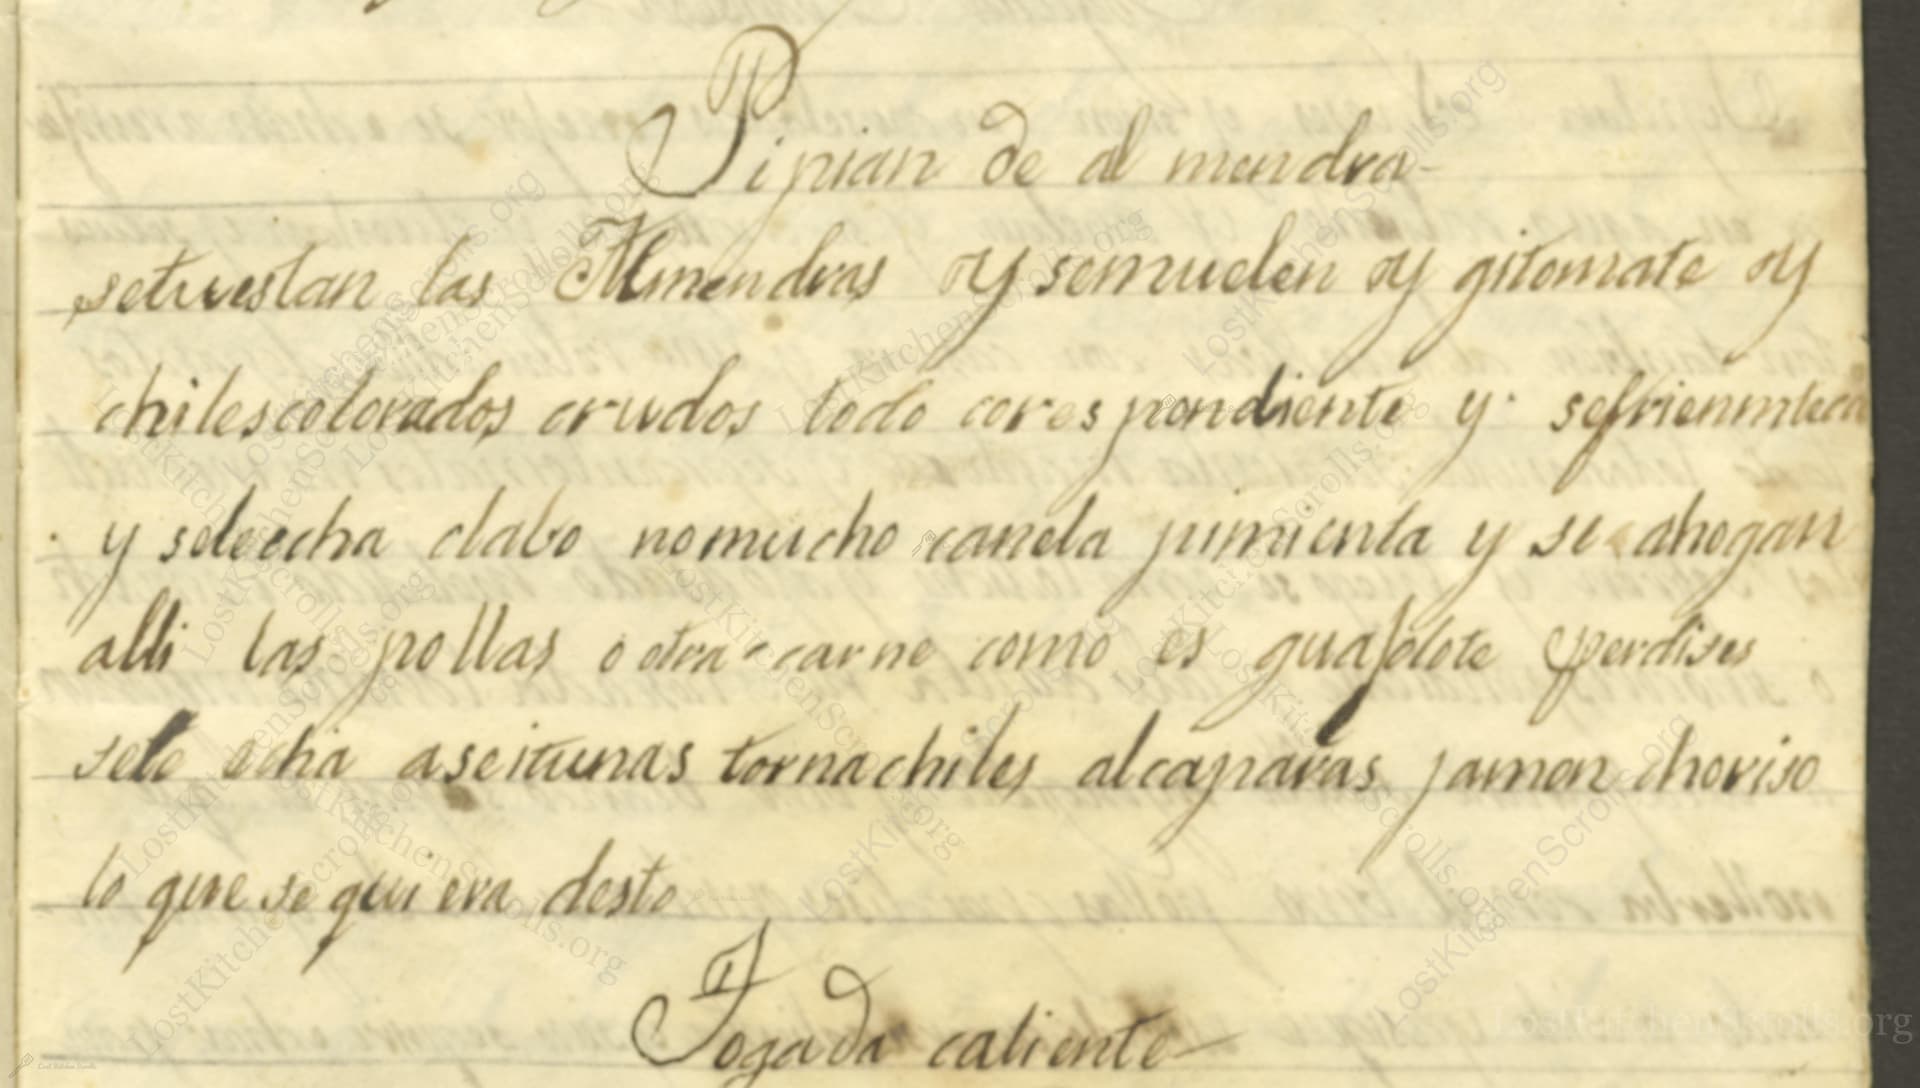 Pipian de al mendra
setuestan las Almendras y semuelen y gitomate y
chilescolorados crudos todo corespondiente y sefrienmteca
y seleecha clabo nomucho canela pimienta y se ahogan
alli las pollas o otra carne como es guajolote perdises
sele echa aseitunas tornachiles alcaparas jamon choriso
lo que se qui era desto
Fogada caliente
LostKitchenScrolls.org